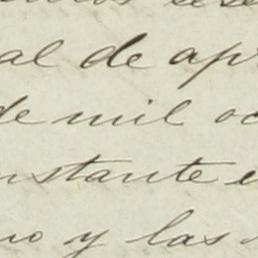 al de ap
de mil oc
nstante e
no y las